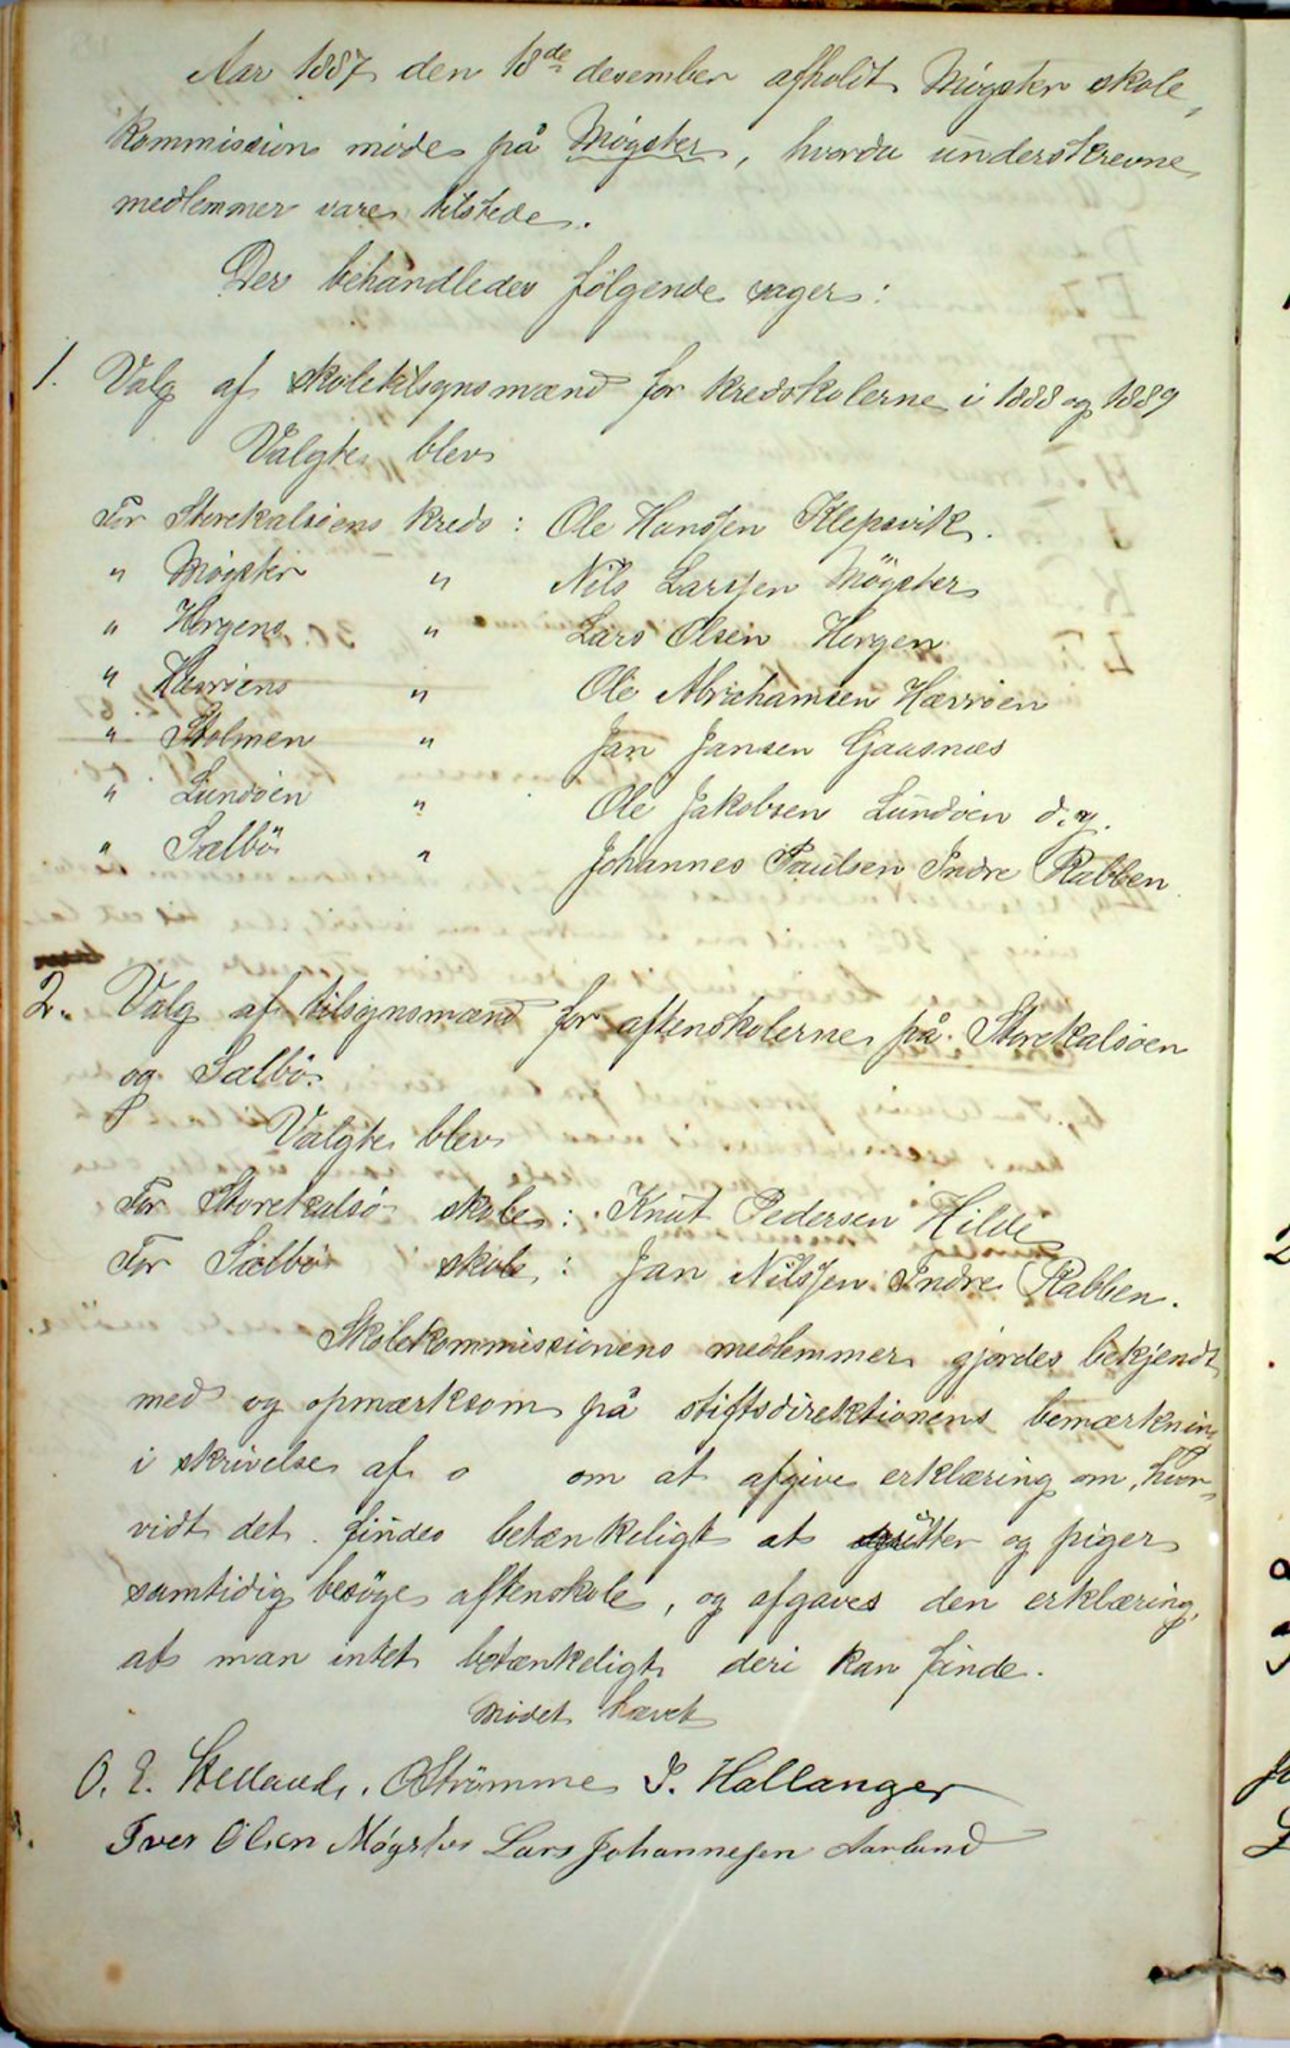 Aar 1887 den 18de desember afholdt Møgster skole,
kommission møde på Møgster, hvorda underskrevne
medlemmer vare tilstede.
Der behandledes følgende sager:
1. Valg af skoletilsynsmænd for kredsskolerne i 1888 og 1889
Valgte blev
For Storekalsøens kreds: Ole Hanssen Klepsvik.
" Møgster " Nils Larssen Møgster
" Horgens " Lars Olsen Horgen
" Hærøens " Ole Abrahamsen Hærøen
" Stolmen " Jan Jansen Gaasnæs
" Lundøen " Ole Jakobsen Lundøen d.y.
" Sælbø " Johannes Paulsen Indre Rabben
2. Valg af tilsynsmænd for aftenskolerne på Storekalsøen
og Sælbø.
Valgte blev
For Storekalsø skole: Knut Pedersen Hilde
For Sælbø skole: Jan Nilssen Indre Rabben.
Skolekommissionens medlemmer gjordes bekjendt
med og opmærksom på stiftsdirektionens bemærkning
i skrivelse af o om at afgive erklæring om, hvor,
vidt det findes betænkeligt at gutter og piger
samtidig besøge aftenskole, og afgaves den erklæring,
at man intet betænkeligt deri kan finde.
Mødet hævet
O. E. Strømme I. Hallanger
Iver Olsen Møgster Lars Johannesen Aarland